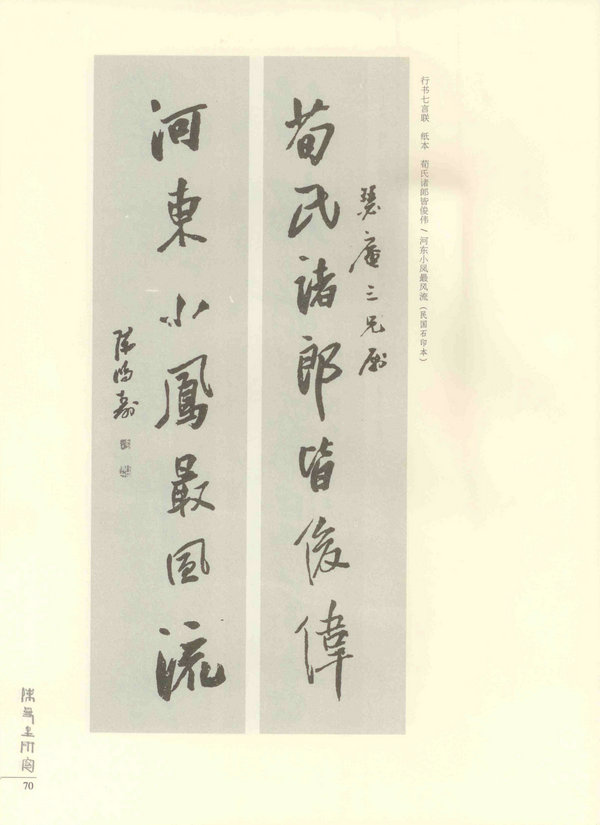 行书七言联　纸本　荀氏诸郎皆俊伟／河东小凤最风流（民国石印本）
荀氏諸郎皆俊偉
三兄屬
河東小鳳最風流
陳鴻壽
70